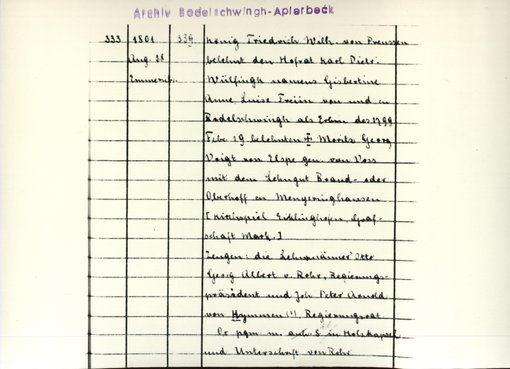 Archiv Bodelschwingh-Aplerbeck
333 1801 534 König Friedrich Wilh. von Preussen
Aug. 28 belehnt den Hofrat Karl Dietr.
Emmerich. Wülfingh namens Gisbertine
Anne Luise Freiin von und zu
Bodelschwingh als Erbin des 1799
Febr. 19 belehnten Moritz Georg
Voigt von Elspe gen. von Voss
mit dem Lehngut Brand- oder
Oberhoff zu Menyeringhausen
[Kirchspiel Eichlinghofen, Graf-
schaft Mark.]
Zeugen: die Lehnmänner Otto
Georg Albert v. Rohr, Regierungs-
präsident und Joh Peter Arnold
von Hymmen (!), Regierungsrat
Or pgm. m. S. in Holzkapsel
und Unterschrift von Rohr